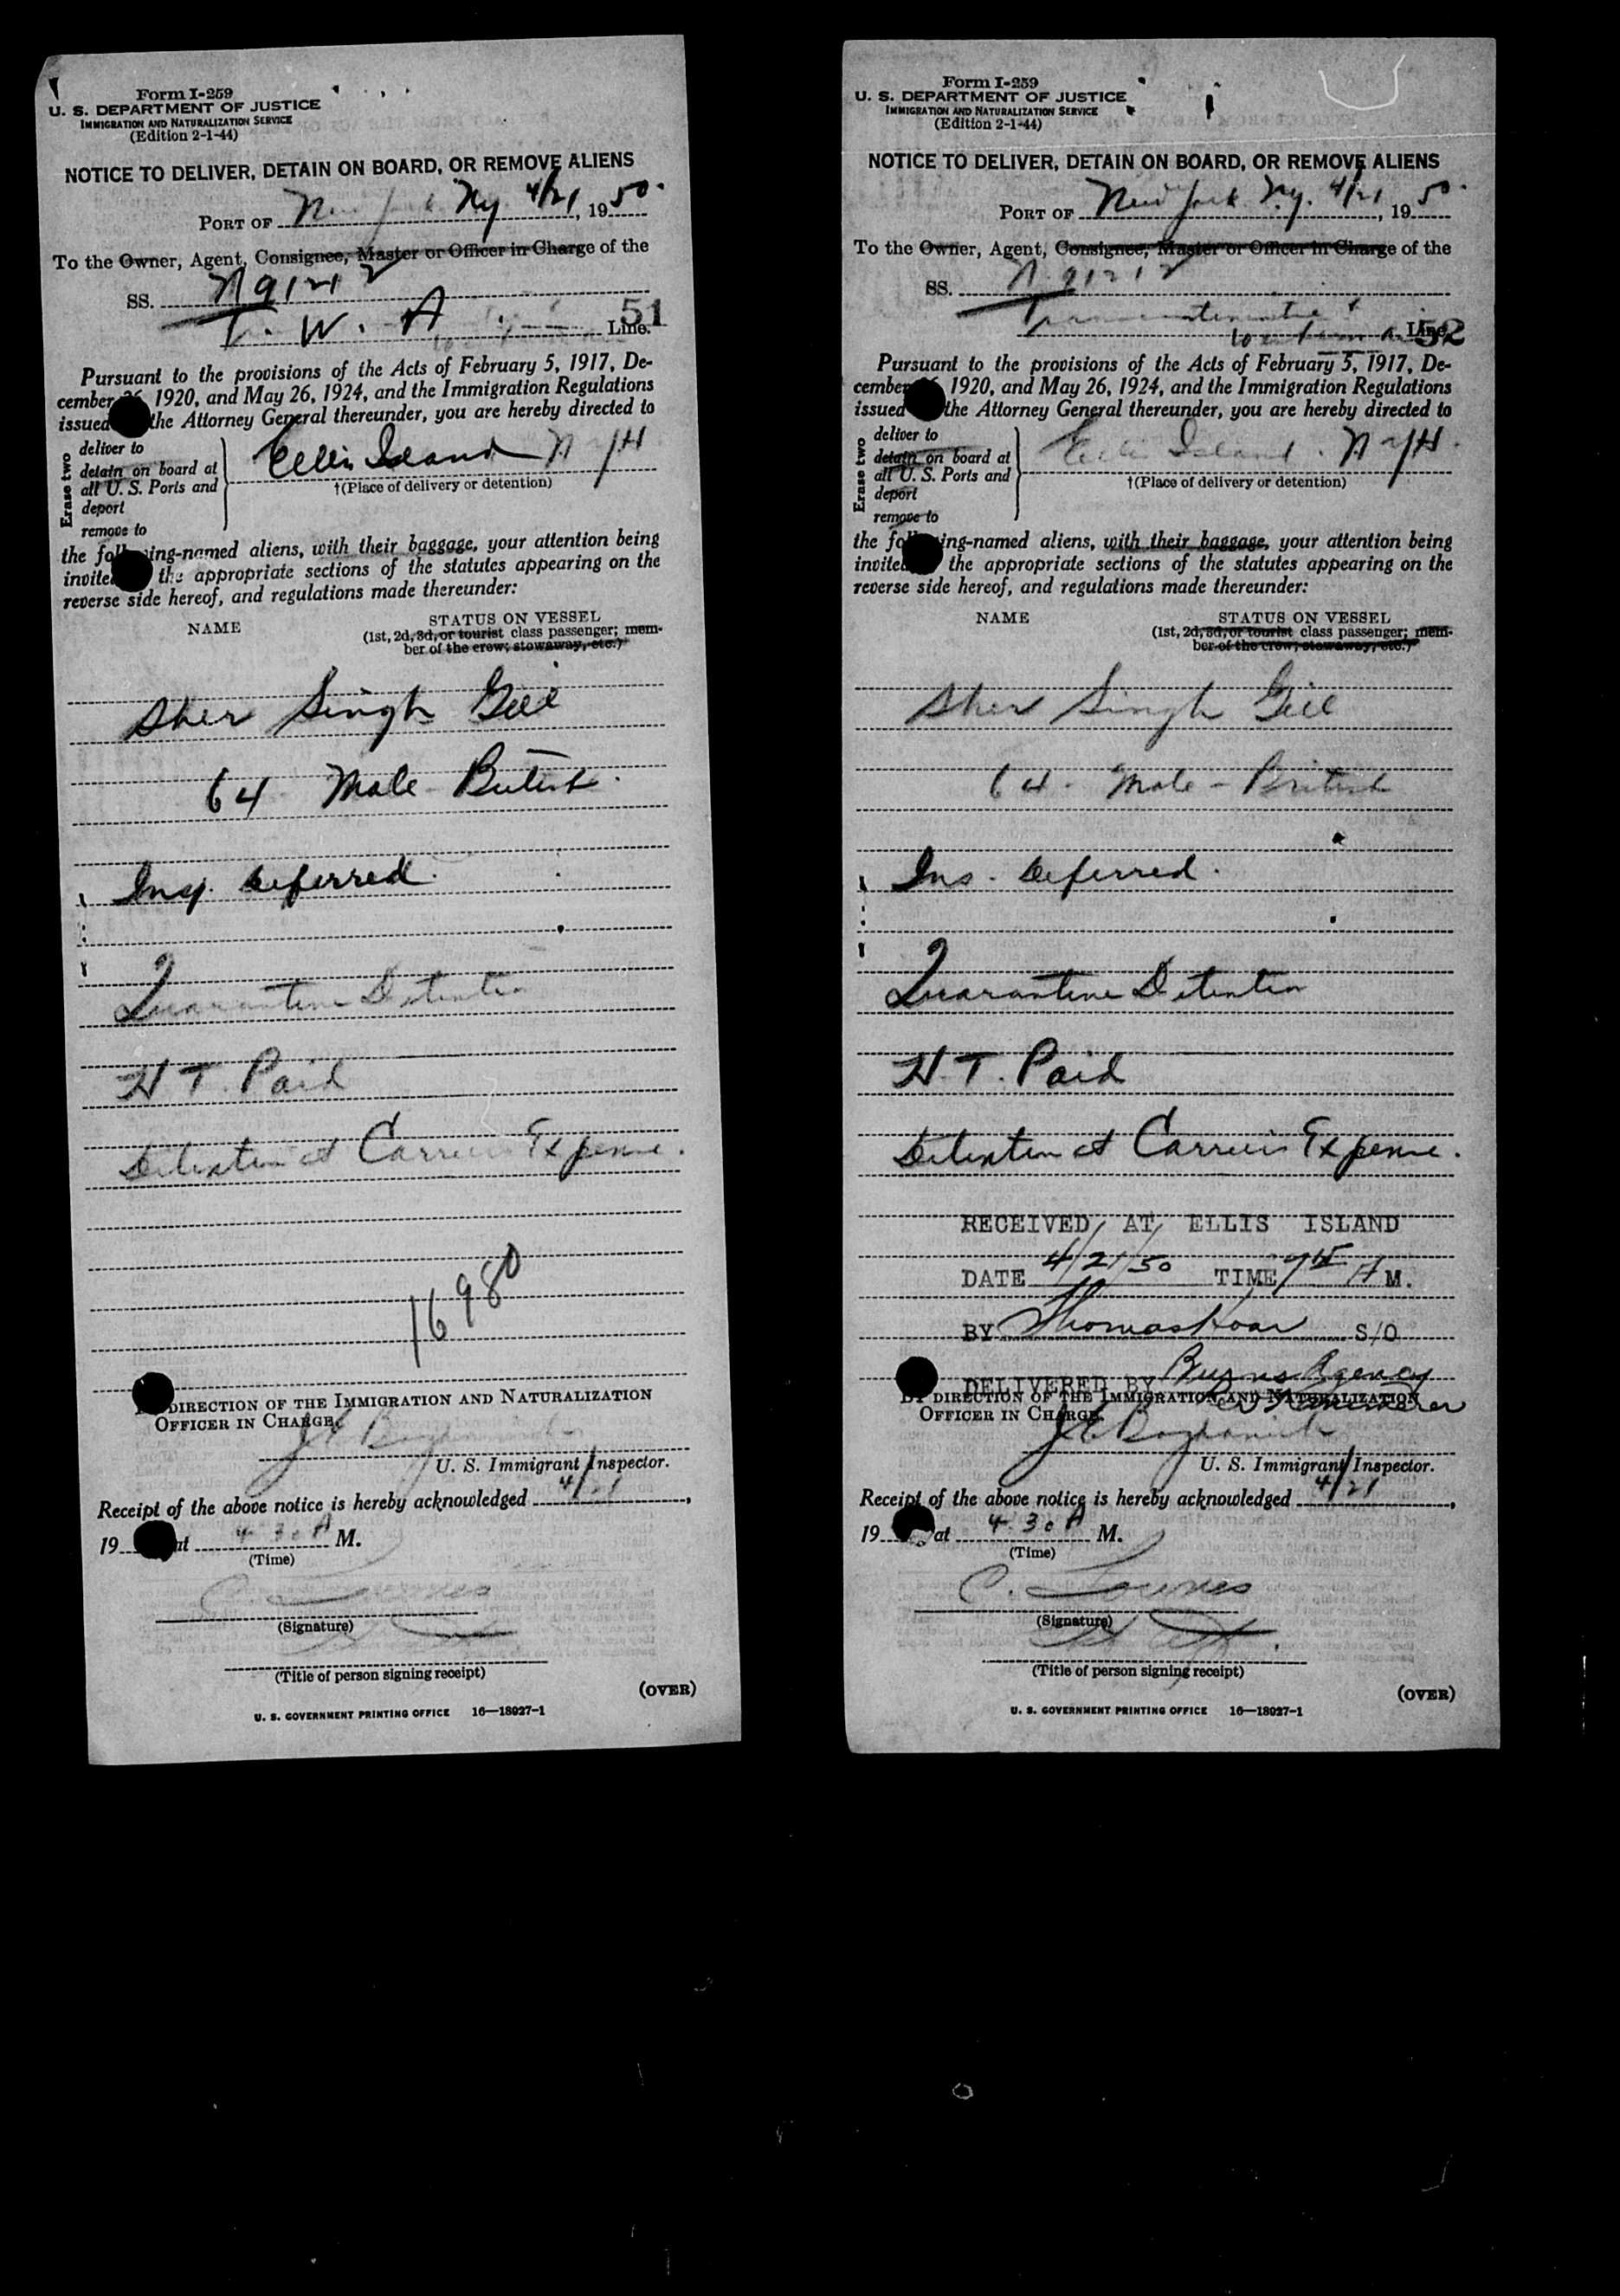 Form I-259
U. S. DEPARTMENT OF JUSTICE
IMMIGRATION AND NATURALIZATION SERVICE
(Edition 2-1-44)
NOTICE TO DELIVER, DETAIN ON BOARD, OR REMOVE ALIENS
PORT OF New York Ny. 4/21, 1950.
To the Owner, Agent, Consignee, Master or Officer in Charge of the
SS. N 91212
T. W. A Line.
51
Pursuant to the provisions of the Acts of February 5, 1917, De-
cember 26, 1920, and May 26, 1924, and the Immigration Regulations
issued the Attorney General thereunder, you are hereby directed to
Erase two
deliver to
detain on board at
all U. S. Ports and
deport
remove to
Ellis Island N.Y.H
†(Place of delivery or detention)
the following-named aliens, with their baggage, your attention being
invited the appropriate sections of the statutes appearing on the
reverse side hereof, and regulations made thereunder:
NAME
STATUS ON VESSEL
(1st, 2d, 3d, or tourist class passenger; mem-
ber of the crew; stowaway, etc.)
Sher Singh Gill
64 Male - British.
Insp. deferred.
Quarantine Detention
H T. Paid
Detention at Carriers Expense.
16980
DIRECTION OF THE IMMIGRATION AND NATURALIZATION
OFFICER IN CHARGE.
U. S. Immigrant Inspector.
Receipt of the above notice is hereby acknowledged 4/21,
19 at 4.30 A M.
(Time)
C. Townes
(Signature)
(Title of person signing receipt)
(OVER)
U. S. GOVERNMENT PRINTING OFFICE 16—18027-1
Form I-259
U. S. DEPARTMENT OF JUSTICE
IMMIGRATION AND NATURALIZATION SERVICE
(Edition 2-1-44)
NOTICE TO DELIVER, DETAIN ON BOARD, OR REMOVE ALIENS
PORT OF New York N.Y. 4/21, 1950.
To the Owner, Agent, Consignee, Master or Officer in Charge of the
SS. N 91212
Transcontinental &
Western Air Line.
52
Pursuant to the provisions of the Acts of February 5, 1917, De-
cember 26, 1920, and May 26, 1924, and the Immigration Regulations
issued the Attorney General thereunder, you are hereby directed to
Erase two
deliver to
detain on board at
all U. S. Ports and
deport
remove to
Ellis Island. N.Y.H.
†(Place of delivery or detention)
the following-named aliens, with their baggage, your attention being
invited the appropriate sections of the statutes appearing on the
reverse side hereof, and regulations made thereunder:
NAME
STATUS ON VESSEL
(1st, 2d, 3d, or tourist class passenger; mem-
ber of the crew; stowaway, etc.)
Sher Singh Gill
64. Male - British
Ins. deferred.
Quarantine Detention
H. T. Paid
Detention at Carriers Expense.
RECEIVED AT ELLIS ISLAND
DATE 4/21/50 TIME 7 15 A M.
BY Thomas Hoar S/O
DELIVERED BY Burns Agency
BY DIRECTION OF THE IMMIGRATION AND NATURALIZATION
OFFICER IN CHARGE.
U. S. Immigrant Inspector.
Receipt of the above notice is hereby acknowledged 4/21,
19 at 4.30 A M.
(Time)
C. Townes
(Signature)
(Title of person signing receipt)
(OVER)
U. S. GOVERNMENT PRINTING OFFICE 16—18027-1